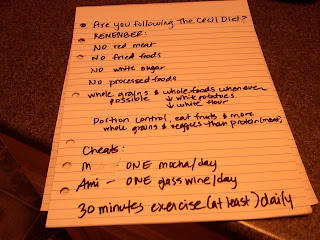 Are you following the Cecil Diet?
REMEMBER:
NO red meat
NO fried foods
NO white sugar
NO processed foods
whole grains & whole foods whenever
possible ↓ white potatoes
↓ white flour
Portion control, eat fruits & more
whole grains & veggies than protein (meat)
Cheats:
M - ONE mocha/day
Ami - ONE glass wine/day
30 minutes exercise (at least) daily